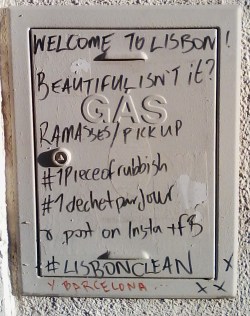 WELCOME TO LISBON!
BEAUTIFUL ISN'T iT?
GAS
RAMASSES/PICK UP
#1Pieceofrubbish
#1dechetparJour
& post on Insta + fB
#LISBONCLEAN
Y BARCELONA
x x x